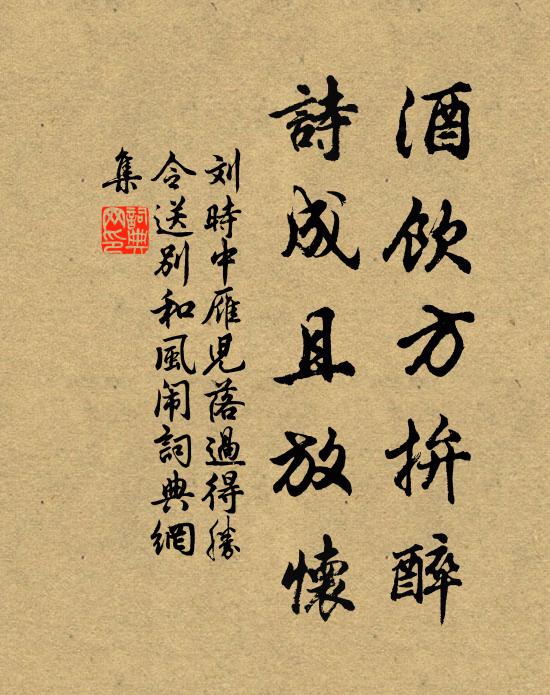 酒飲方拚醉
詩成且放懷
刘時中雁兒落過得勝
令送别和風闹詞典網
集
詞典
网印